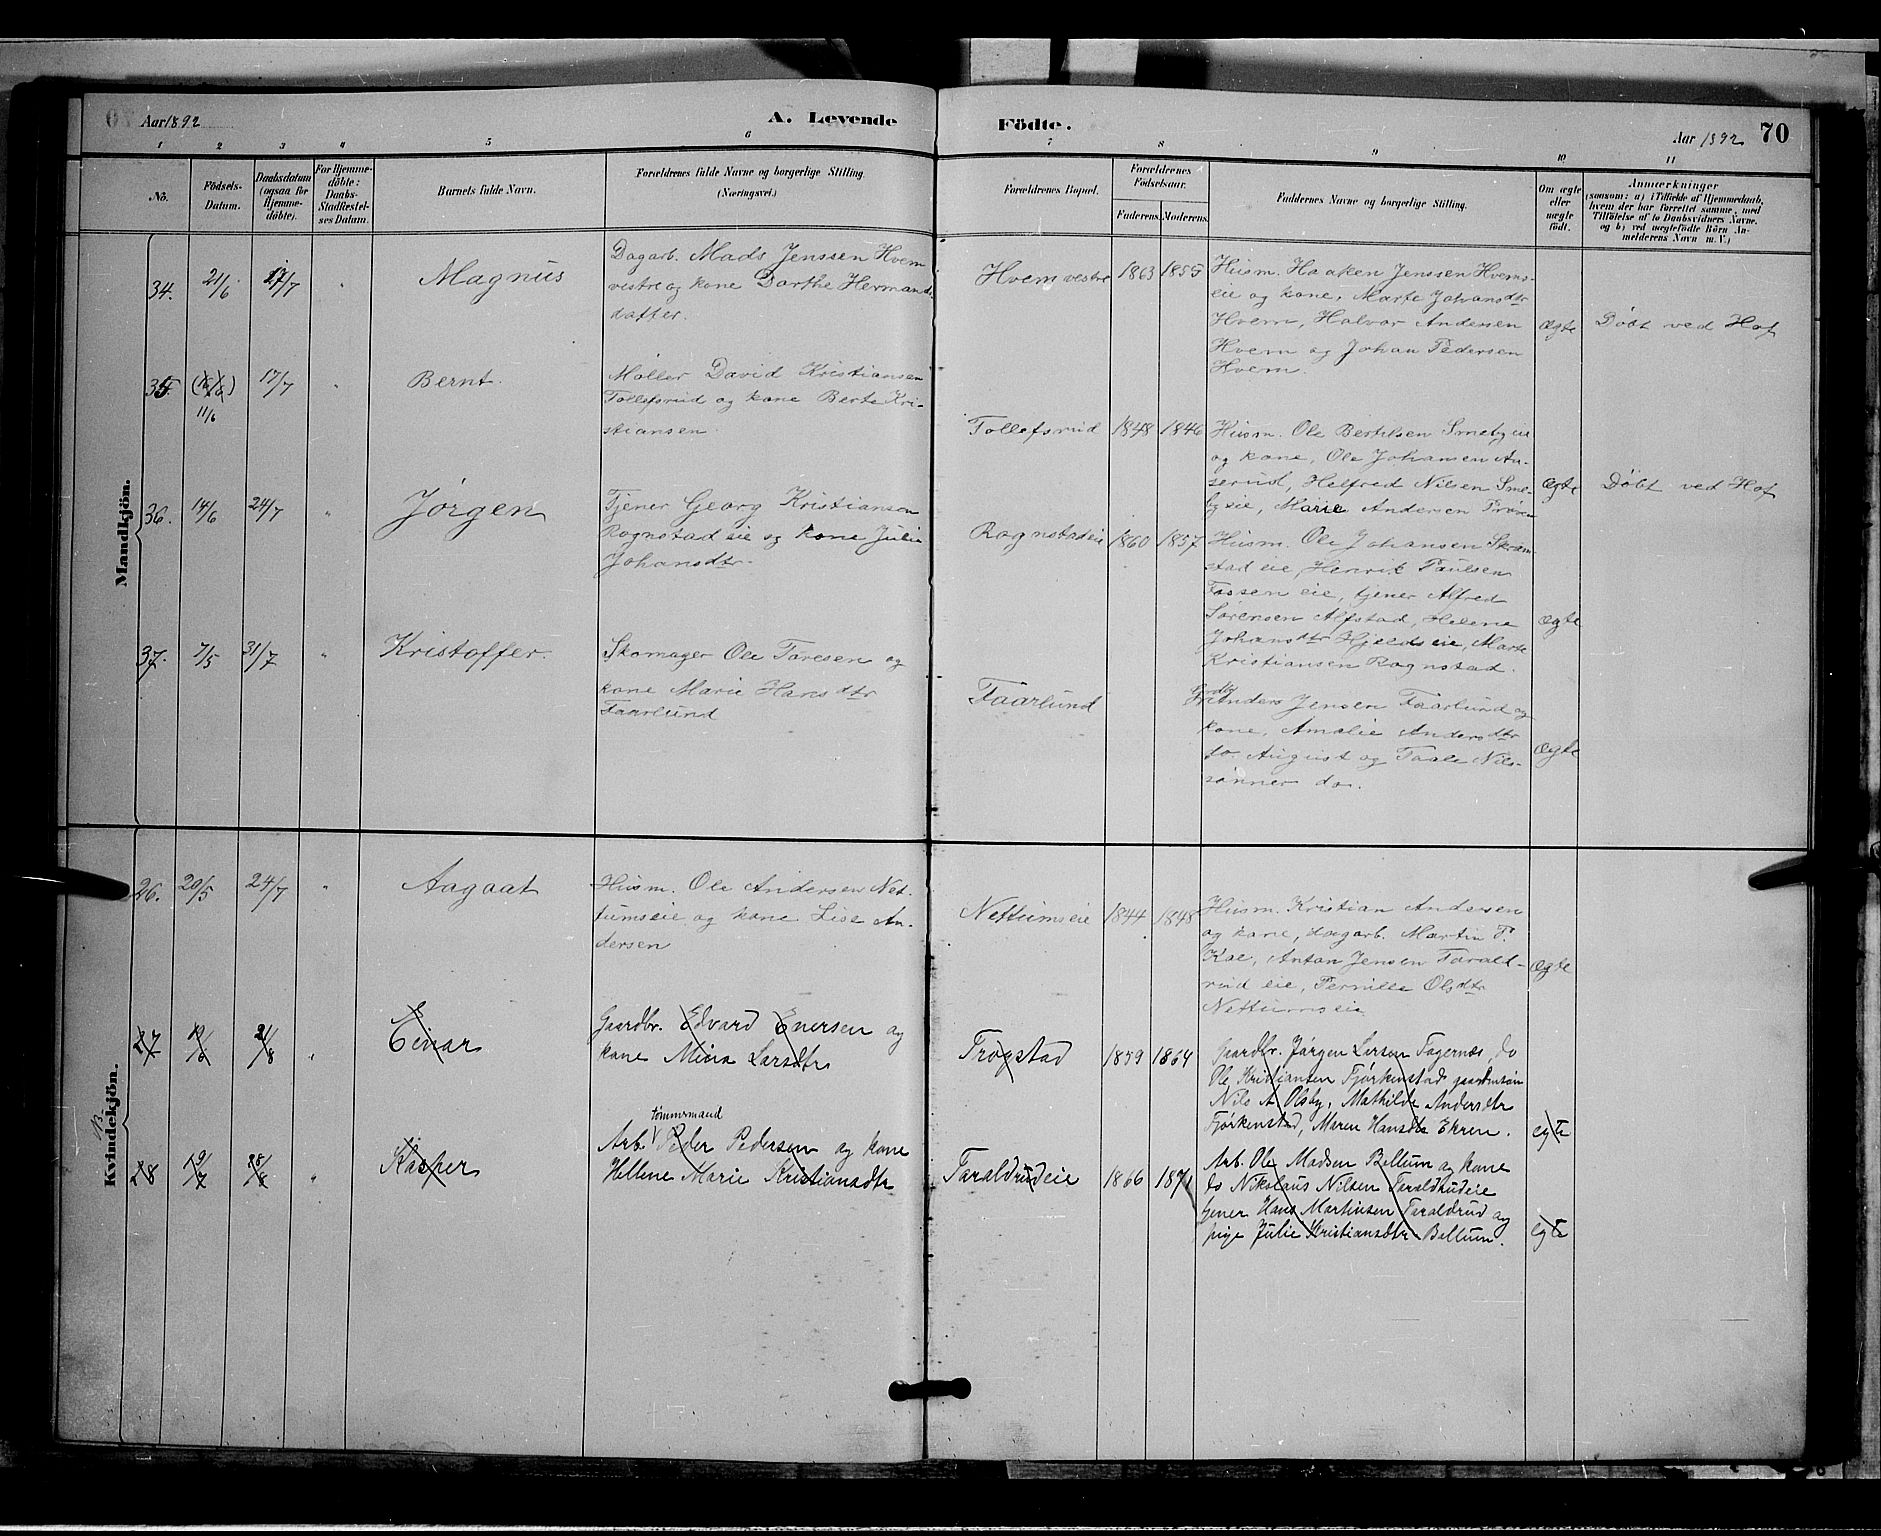 Aar 1892
A. Levende
Födte.
Aar 1892
70
1 2 3 4 5 6 7 8 9 10 11
No.
Födsels-
Datum.
Daabsdatum
(ogsaa for
Hjemme-
döbte).
For Hjemme-
döbte:
Daabs-
Stadfæstel-
ses Datum.
Barnets fulde Navn.
Forældrenes fulde Navne og borgerlige Stilling.
(Næringsvei.)
Forældrenes Bopæl.
Forældrenes
Födselsaar.
Faderens. Moderens.
Faddernes Navne og borgerlige Stilling.
Om ægte
eller
uægte
födt.
Anmærkninger
(saasom: a) i Tilfælde af Hjemmedaab,
hvem der har forrettet samme, med
Tilföielse af to Daabsvidners Navne,
og b) ved uægtefödte Börn An-
melderens Navn m. V.)
Mandkjön.
34.
21/6
17/7
"
Magnus
Dagarb. Mads Jenssen Hvem
vestre og kone Dorthe Hermands
datter.
Hvem vestre
1863
1855
Husm. Haaken Jenssen Hvems-
eie og kone, Marte Johansdtr
Hvem, Halvor Andersen
Hvem og Johan Pedersen
Hvem.
Ægte
Döbt ved Hof
35.
11/6
17/7
"
Bernt.
Møller David Kristiansen
Tollefsrud og kone Berte Kri-
stiansen.
Tollefsrud
1848
1846
Husm. Ole Bertilsen Smebyeie
og kone, Ole Johansen An-
serud, Helfred Nilsen Sme-
byeie, Marie Andersen
Ægte
Döbt ved Hof
36.
14/6
24/7
"
Jörgen
Tjener Georg Kristiansen
Rognstadeie og kone Julie
Johansdtr.
Rognstadeie
1860
1857
Husm. Ole Johansen Skram-
stadeie, Henrik Paulsen
Fossen eie, tjener Alfred
Sørensen Alfstad, Helene
Johansdtr Hjeldseie, Marte
Kristiansen Rognstad.
Ægte
37.
7/5
31/7
"
Kristoffer.
Skomager Ole Toresen og
kone Marie Hansdtr
Faarlund
Faarlund
Anders Jensen Faarlund og
kone, Amalie Andersdtr
do. August og Taale Nils-
sønner do.
Ægte
Kvindekjön.
26.
20/5
24/7
"
Aagaat
Husm. Ole Andersen Net-
tumseie og kone Lise An-
dersen
Nettumseie
1844
1848
Husm. Kristian Andersen
og kone, dagarb. Martin P.
Kae, Anton Jensen Tarald-
rud eie, Pernille Olsdtr
Nettumseie
Ægte
27
19/6
21/8
"
Einar
Gaardbr. Edvard Enersen og
kone Mina Larsdtr
Trogstad
1859
1864
Gaardbr. Jørgen Larsen Fagernæs, do
Ole Kristiansen Fjørkenstad gaardmsøn
Nils A. Olsby, Mathilde Andersdtr
Fjørkenstad, Maren Hansdtr Ekren.
egte
28
19/7
28/8
"
Kasper
tømmermand
Arb. Peder Pedersen og kone
Hellene Marie Kristiansdtr
Taraldrudeie
1866
1871
Arb. Ole Madsen Bellum og kone
do Nikolaus Nilsen Taraldrudeie
tjener Hans Martinsen Taraldrud og
pige Julie Kristiansdtr Bellum.
egte